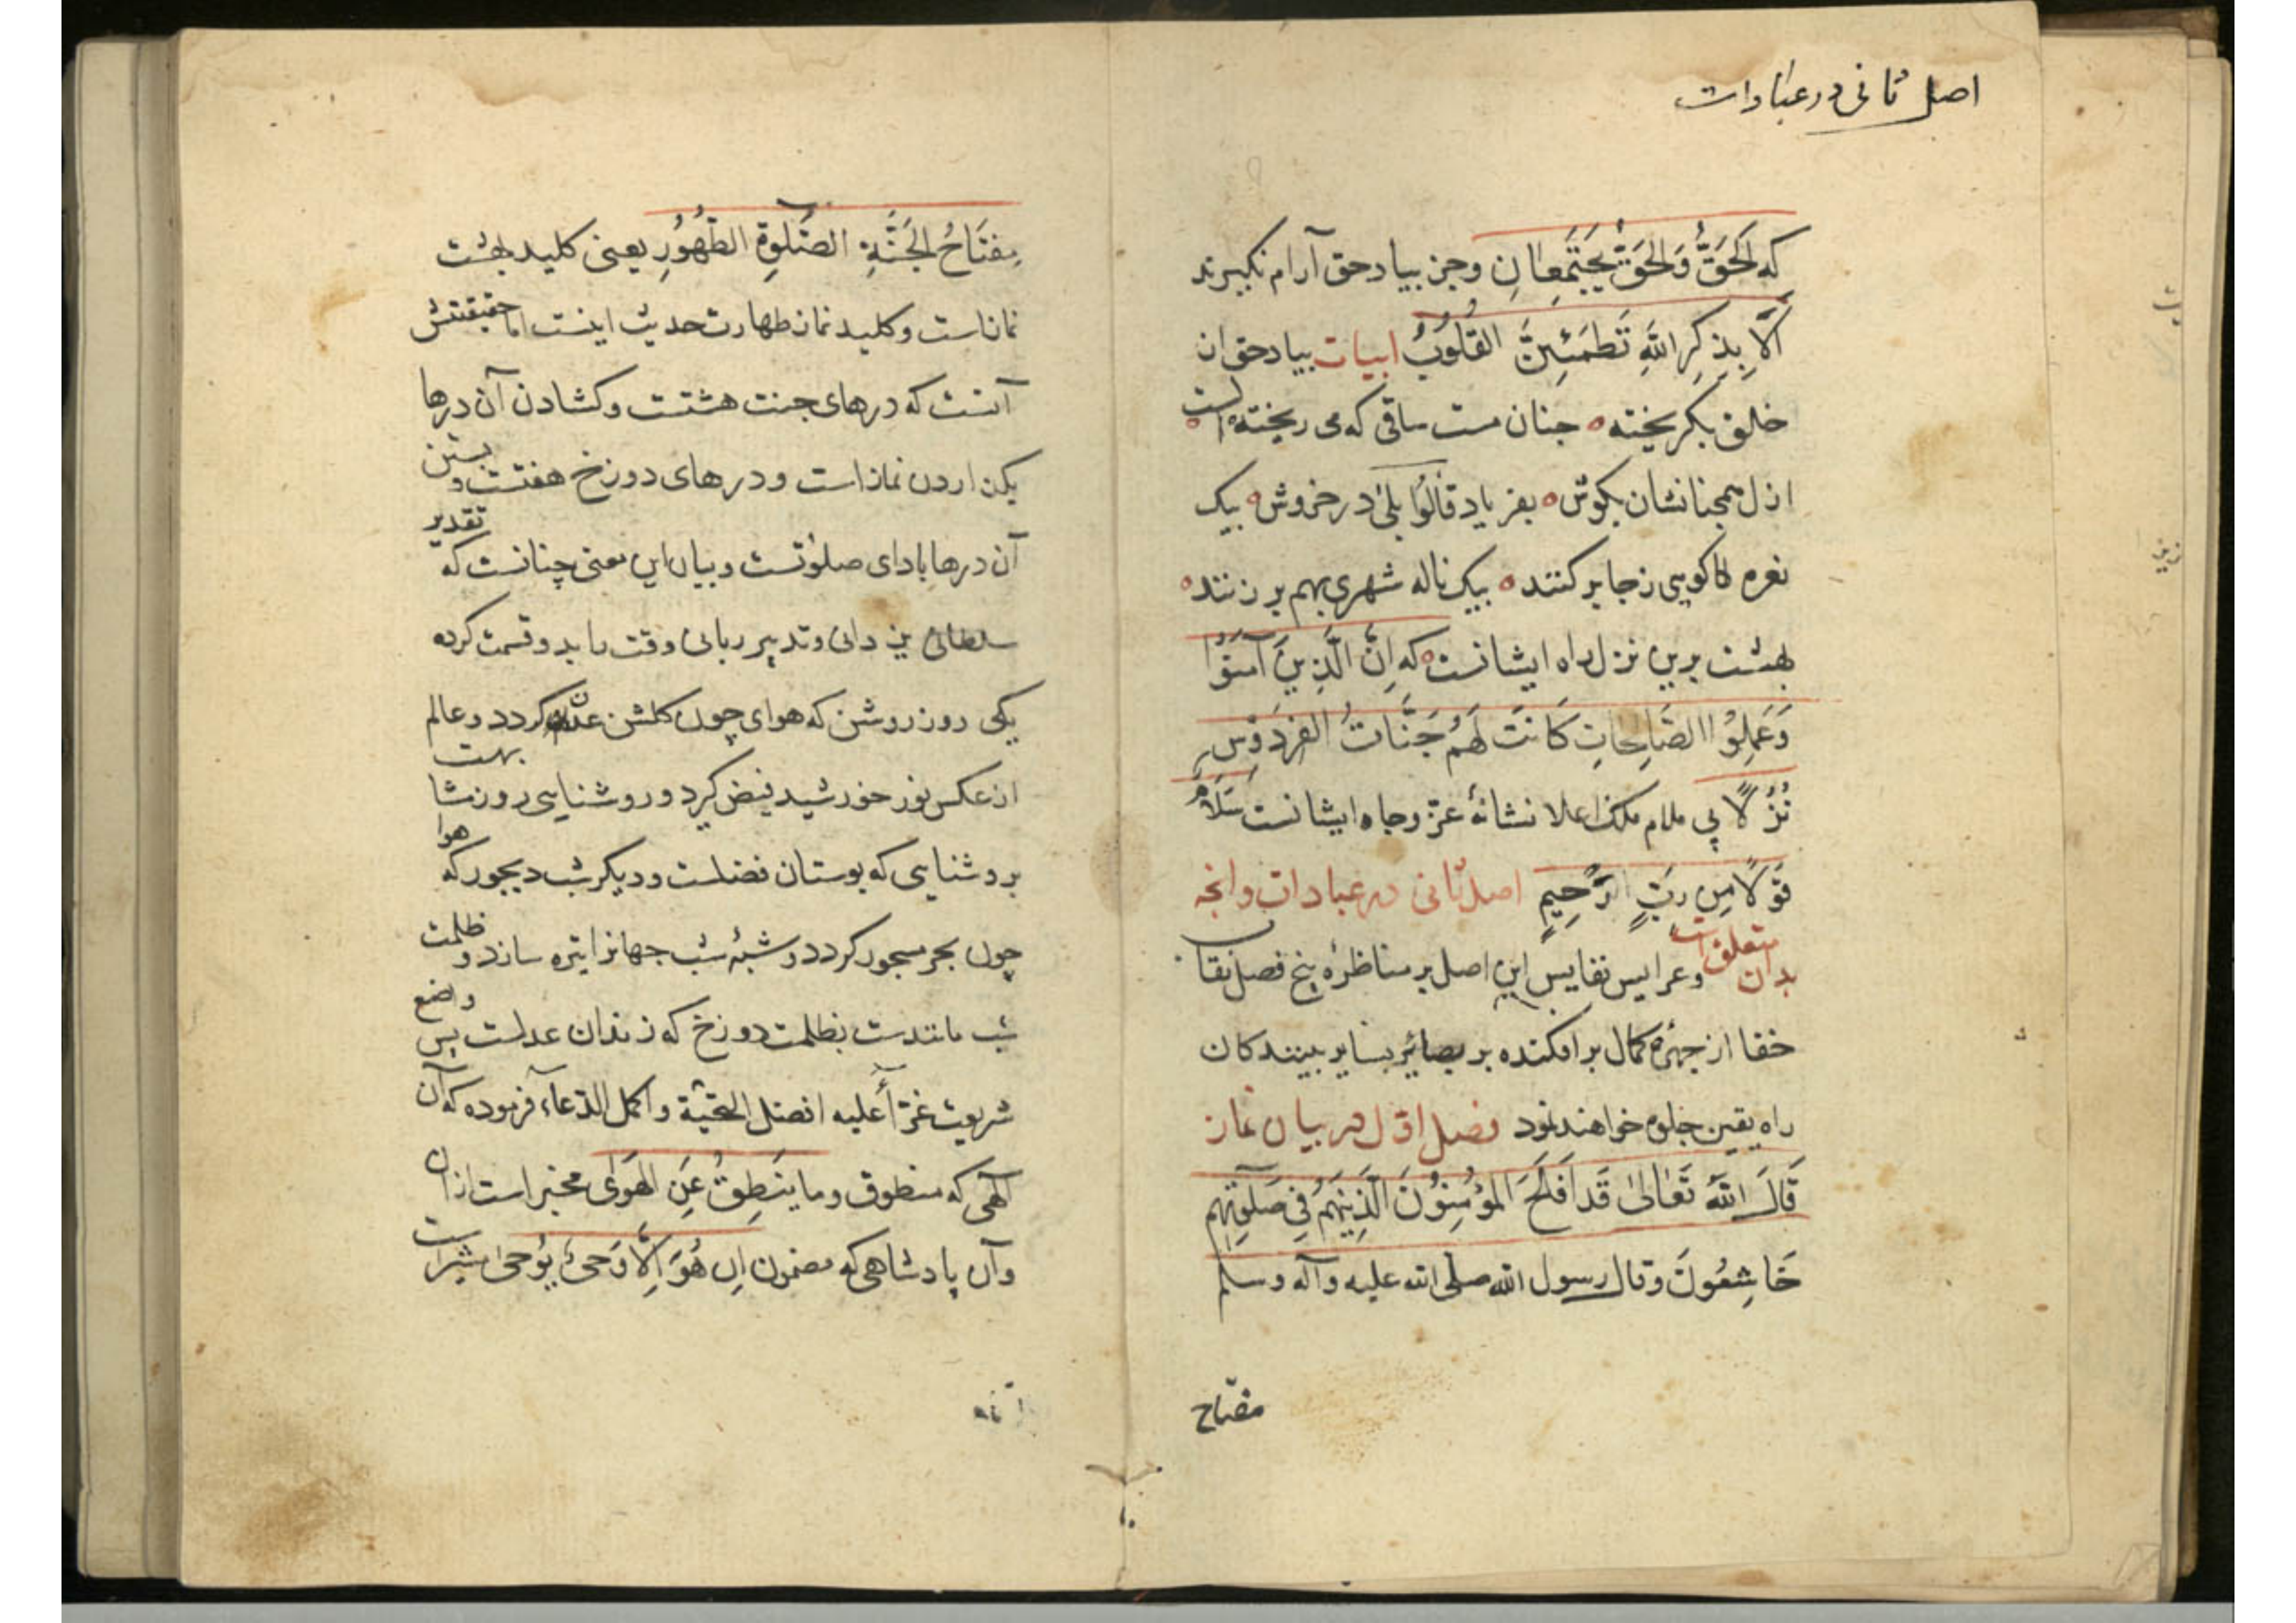 اصل ثانی در عبادات
که الحَقُّ وَالحَقُّ يَجتَمِعانِ وجز بیاد حق آرام نکیرند
اَلَا بِذِکرِ اللهِ تَطمَئِنُّ القُلُوبُ ابیات بیاد حق از
خلق بکریخته ه چنان مست ساقی که می ریخته ه الست
از ل همچنانشان بکوش ه بفریاد قالُوا بَلیٰ در خروش ه بیک
نعره کوهی زجا بر کنند ه بیک ناله شهری بهم بر زنند ه
بهشت برین نزل راه ایشانست که اِنَّ الَّذِينَ آمَنُوا
وَعَمِلُوا الصَّالِحَاتِ کَانَت لَهُم جَنَّاتُ الفِردَوسِ
نُزُلًا پی ملام ملک اعلا نشانهٔ عزّ وجاه ایشانست سَلَامٌ
قَولًا مِن رَبٍّ الرَّحِيمٍ اصل ثانی در عبادات وانچه
بدان متعلق است وعرایس نفایس این اصل بر مناظرهٔ پنج فصل نقاب
خفا از چهرهٔ کمال برافکنده بر بصائر بینندکان
راه یقین جلوه خواهند نمود فصل اوّل در بیان نماز
قَالَ اللهُ تَعَالیٰ قَد اَفلَحَ المُؤمِنُونَ الَّذِينَهُم فِي صَلٰوتِهِم
خَاشِعُونَ وقال رسول الله صلی الله علیه وآله وسلم
مفتاح
مِفتَاحُ الجَنَّةِ الصَّلٰوةِ الطَّهُورِ یعنی کلید بهشت
نماز است وکلید نماز طهارت حدیث اینست اما حقیقتش
آنست که درهای جنت هشتست وکشادن آن درها
بکزاردن نماز است ودرهای دوزخ هفتست وبستن
آن درها بادای صلوتست وبیان این معنی چنانست که تقدیر
سلطان یزدانی وتدبیر ربانی وقت را بدو قسمت کرده
یکی روز روشن که هوای چون کلشن عدن کردد وعالم
از عکس نور خورشید فیض کیرد وروشنایی روز نشا بهت
بروشنایی که بوستان فضلست ودیکر شب دیجور که هوا
چون بحر مسجور کردد وشبهٔ شب جهانرا تیره سازد وظلمت
شب مانندست بظلمت دوزخ که زندان عدلست پس واضع
شریعت غرّا علیه افضل التحیّة واکمل الدّعاء فرموده که آن
آلهی که منطوق وما یَنطِقُ عَنِ الهَوٰی مخبر است ازان
وآن پادشاهی که مضمون اِن هُوَ اِلَّا وَحیٌ یُوحیٰ مشیر است